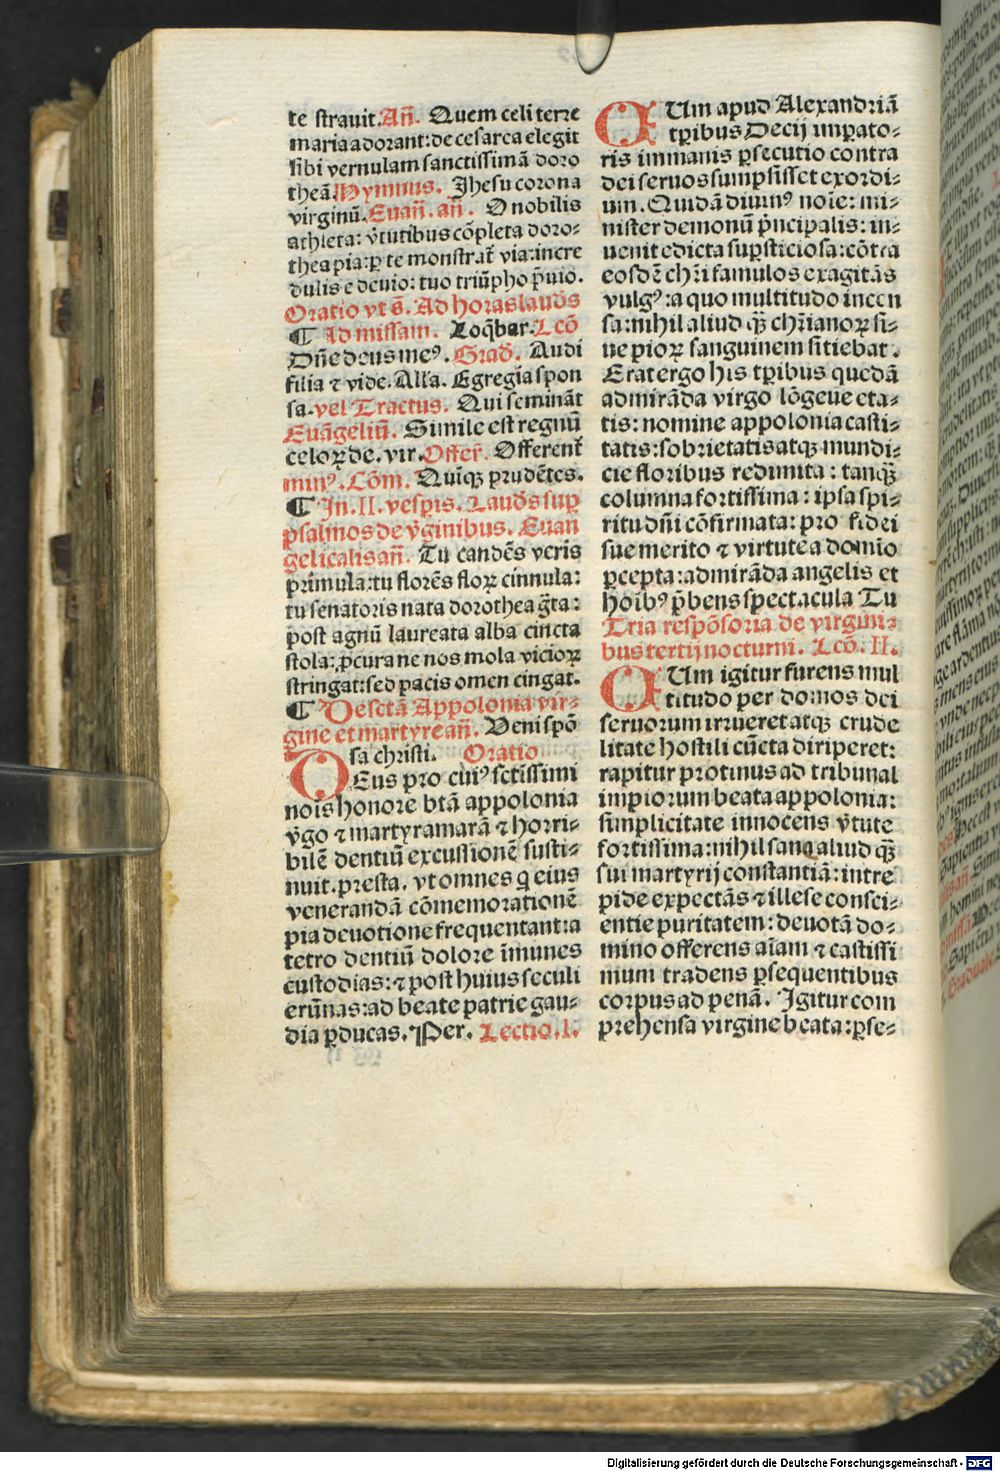 te strauit. Añ. Quem celi terre
maria adorant: de cesarea elegit
sibi vernulam sanctissimā doro
theā. Hymnus. Jhesu corona
virginū. Euañ. añ. O nobilis
athleta: v̓tutibus cōpleta doro-
thea pia: ꝑ te monstrat᷑ via: incre
dulis e deuio: tuo triūpho p̄uio.
Oratio vt s̄. Ad horas laud̄s
¶ Ad missam. Loq̄bar. Lcō
Dñe deus meꝰ. Grad̄. Audi
filia ⁊ vide. All'a. Egregia spon
sa. vel Tractus. Qui semināt
Euāgeliū. Simile est regnū
celoꝝ de. vir. Offer̄. Offerent᷑
minꝰ. Cōm. Quīqꝫ prudētes.
¶ In. II. vesp̄is. Laud̄s sup̄
psalmos de v̓ginibus. Euan
gelicalis añ. Tu candēs veris
primula: tu florēs floꝝ cinnula:
tu senatoris nata dorothea ḡta:
post agnū laureata alba cincta
stola: ꝓcura ne nos mola vicioꝝ
stringat: sed pacis omen cingat.
¶ De sctā Appolonia vir-
gine et martyre añ. Veni spō
sa christi. Oratio
DEus pro cuiꝰ sctissimi
nois honore btā appolonia
v̓go ⁊ martyr amarā ⁊ horri-
bilē dentiū excussionē susti-
nuit. presta. vt omnes q̄ eius
venerandā cōmemorationē
pia deuotione frequentant: a
tetro dentiū dolore īmunes
custodias: ⁊ post huius seculi
erūnas: ad beate patrie gau-
dia ꝑducas. Per. Lectio. I.
CUm apud Alexandriā
tꝑibus Decij imꝑato-
ris immanis ꝑsecutio contra
dei seruos sumpsisset exordi-
um. Quidā diuinꝰ noīe: mi-
nister demonū p̄ncipalis: in-
uenit edicta suꝑsticiosa: cōtra
eosdē chr̄i famulos exagitās
vulgꝰ: a quo multitudo incen
sa: nihil aliud qꝫ̄ chr̄ianoꝝ si-
ue pioꝝ sanguinem sitiebat.
Erat ergo his tꝑibus quedā
admirāda virgo lōgeue eta-
tis: nomine appolonia casti-
tatis: sobrietatis atqꝫ mundi-
cie floribus redimita: tanqꝫ̄
columna fortissima: ipsa spi-
ritu dñi cōfirmata: pro fidei
sue merito ⁊ virtute a domīo
ꝑcepta: admirāda angelis et
hoībꝰ p̄bens spectacula Tu
Tria respōsoria de virgini-
bus tertij nocturni. Lcō. II.
CUm igitur furens mul
titudo per domos dei
seruorum irrueret atqꝫ crude
litate hostili cūcta diriperet:
rapitur protinus ad tribunal
impiorum beata appolonia:
simplicitate innocens v̓tute
fortissima: nihil sana aliud qꝫ̄
sui martyrij constantiā: intre
pide expectās ⁊ illese consci-
entie puritatem: deuotā do-
mino offerens aīam ⁊ castissi
mum tradens ꝑsequentibus
corpus ad penā. Igitur com
prehensa virgine beata: ꝑse-
Digitalisierung gefördert durch die Deutsche Forschungsgemeinschaft - DFG